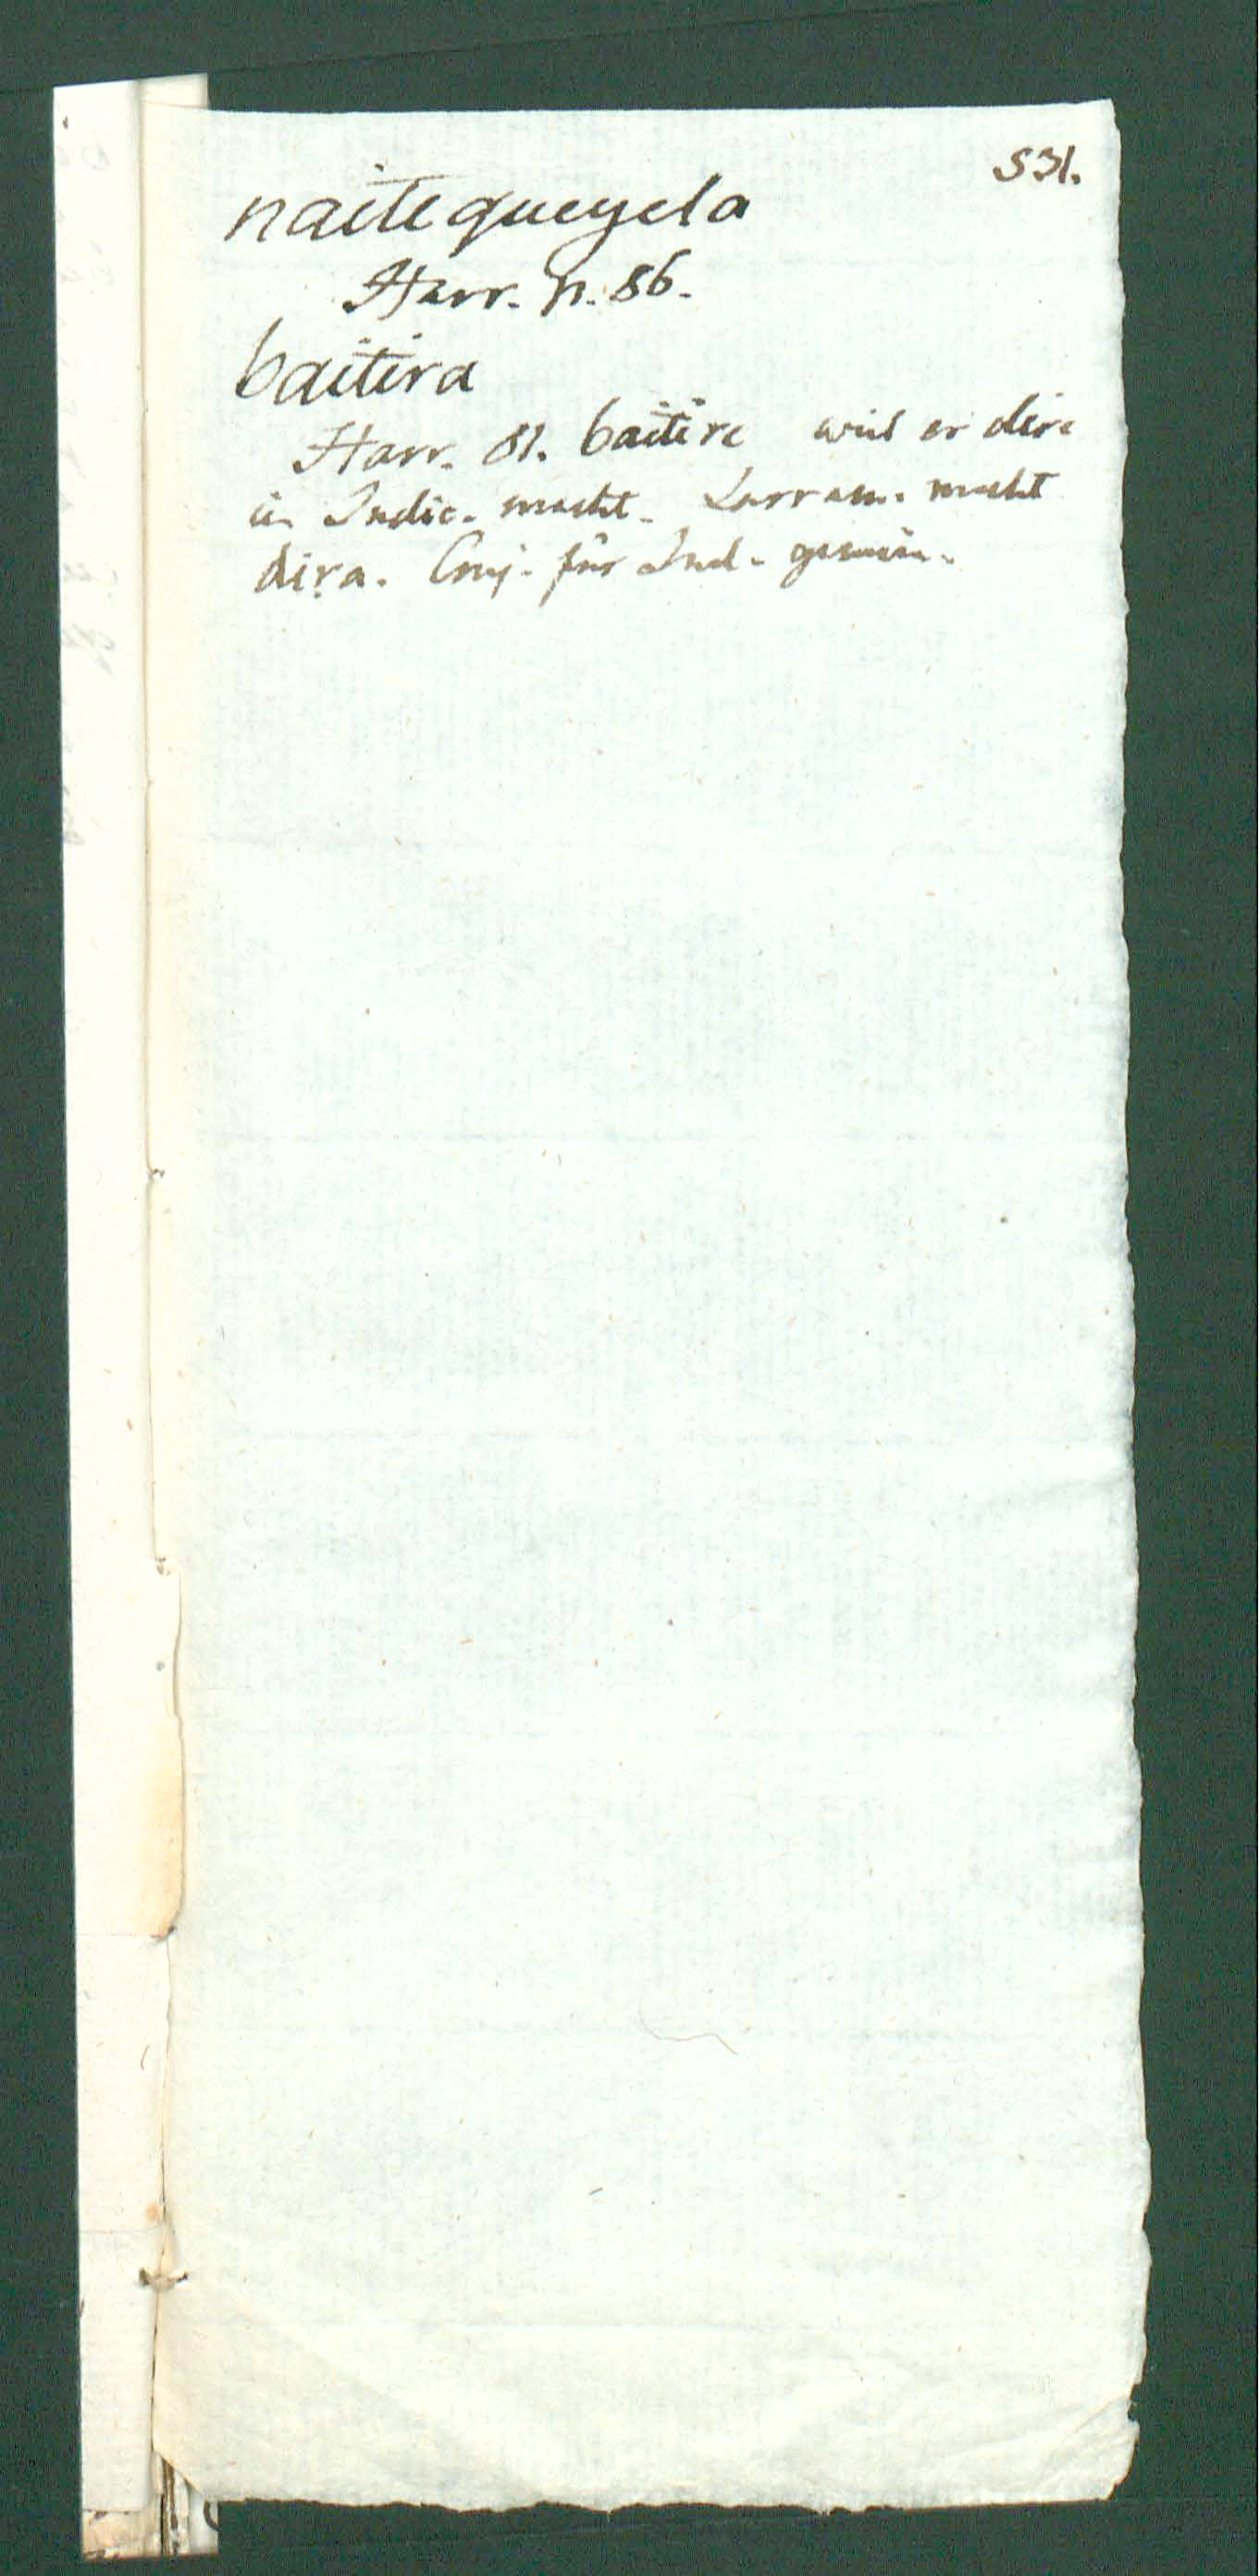 531.
naitequeyela
Harr. n. 86.
baitira
Harr. 81. baitire weil er dire
in Indic. macht. Larram. macht
dira. Conj. für Ind.